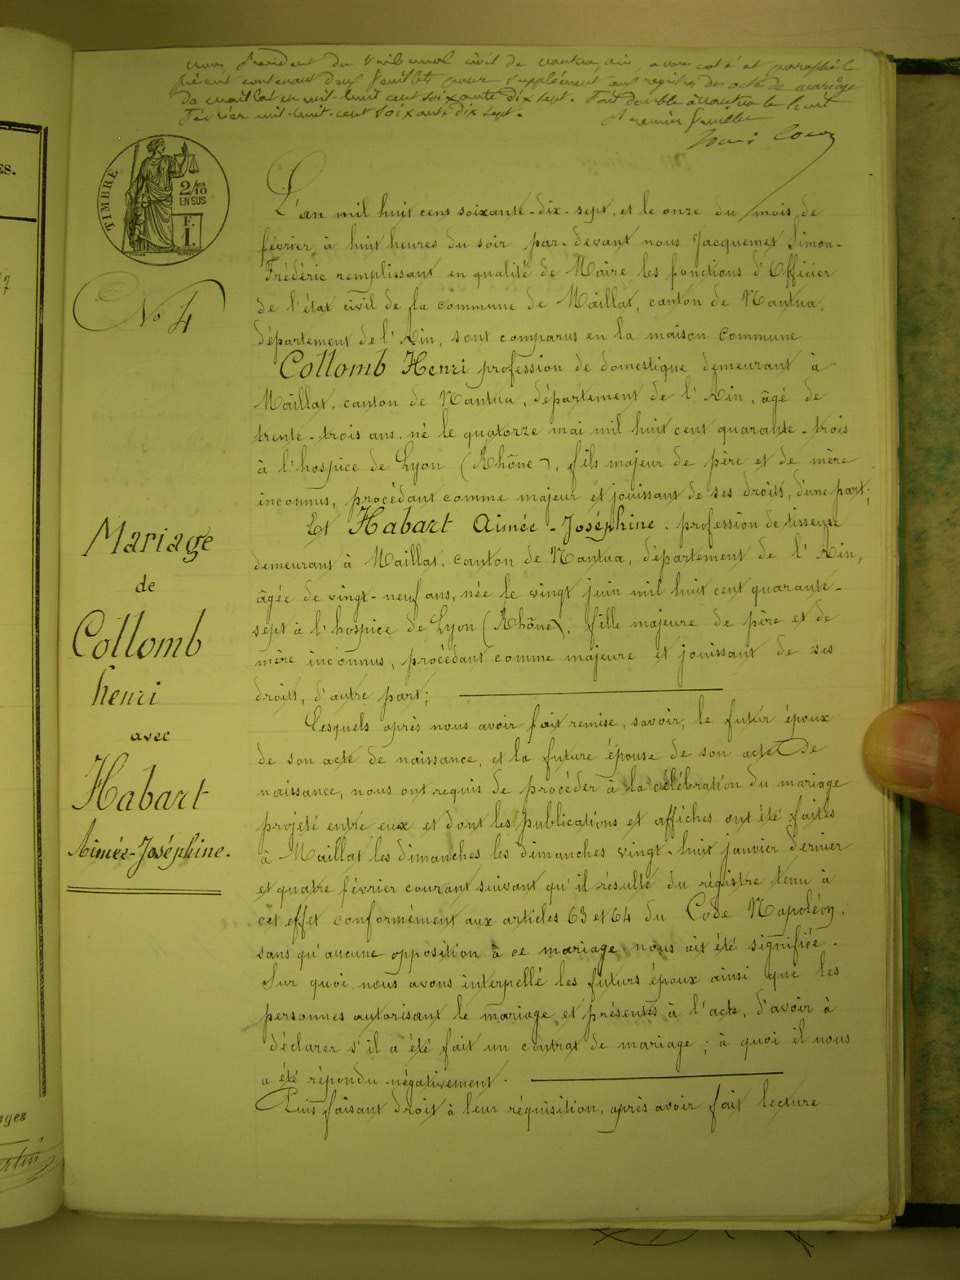 Nous Président du Tribunal civil de Nantua ain, avons coté et paraphé le
présent contenant deux feuillets pour supplément aux registres des actes de mariage
de Maillat en mil-huit cent soixante dix sept. Fait double à Nantua le huit
Février mil-huit-cent soixante dix sept.
Premier feuillet
TIMBRE
2/10
EN SUS
L'an mil huit cent soixante-dix-sept, et le onze du mois de
février, à huit heures du soir par-devant nous Jacquemet Simon-
Frédéric remplissant en qualité de Maire les fonctions d'Officier
de l'état civil de la commune de Maillat, canton de Nantua,
département de l'Ain, sont comparus en la maison commune
No 4
Collomb Henri profession de domestique demeurant à
Maillat, canton de Nantua, département de l'Ain, âgé de
trente-trois ans, né le quatorze mai mil huit cent quarante-trois
à l'hospice de Lyon (Rhône), fils majeur de père et de mère
inconnus, procédant comme majeur et jouissant de ses droits, d'une part;
Et Habart Aimée-Joséphine, profession de tisseuse
demeurant à Maillat, canton de Nantua, département de l'Ain,
âgée de vingt-neuf ans, née le vingt juin mil huit cent quarante-
sept à l'hospice de Lyon (Rhône), fille majeure de père et de
mère inconnus, procédant comme majeure et jouissant de ses
droits, d'autre part;
Mariage
de
Collomb
henri
avec
Habart
Aimée-Joséphine.
Lesquels après nous avoir fait remise, savoir, le futur époux
de son acte de naissance, et la future épouse de son acte de
naissance, nous ont requis de procéder à la célébration du mariage
projeté entre eux et dont les publications et affiches ont été faites
à Maillat les dimanches les dimanches vingt-huit janvier dernier
et quatre février courant suivant qu'il résulte du régistre tenu à
cet effet conformément aux articles 63 et 64 du Code Napoléon,
sans qu'aucune opposition à ce mariage nous ait été signifiée.
Sur quoi nous avons interpellé les futurs époux ainsi que les
personnes autorisant le mariage et présentes à l'acte, d'avoir à
déclarer s'il a été fait un contrat de mariage; à quoi il nous
a été répondu négativement.
Puis faisant droit à leur réquisition, après avoir fait lecture